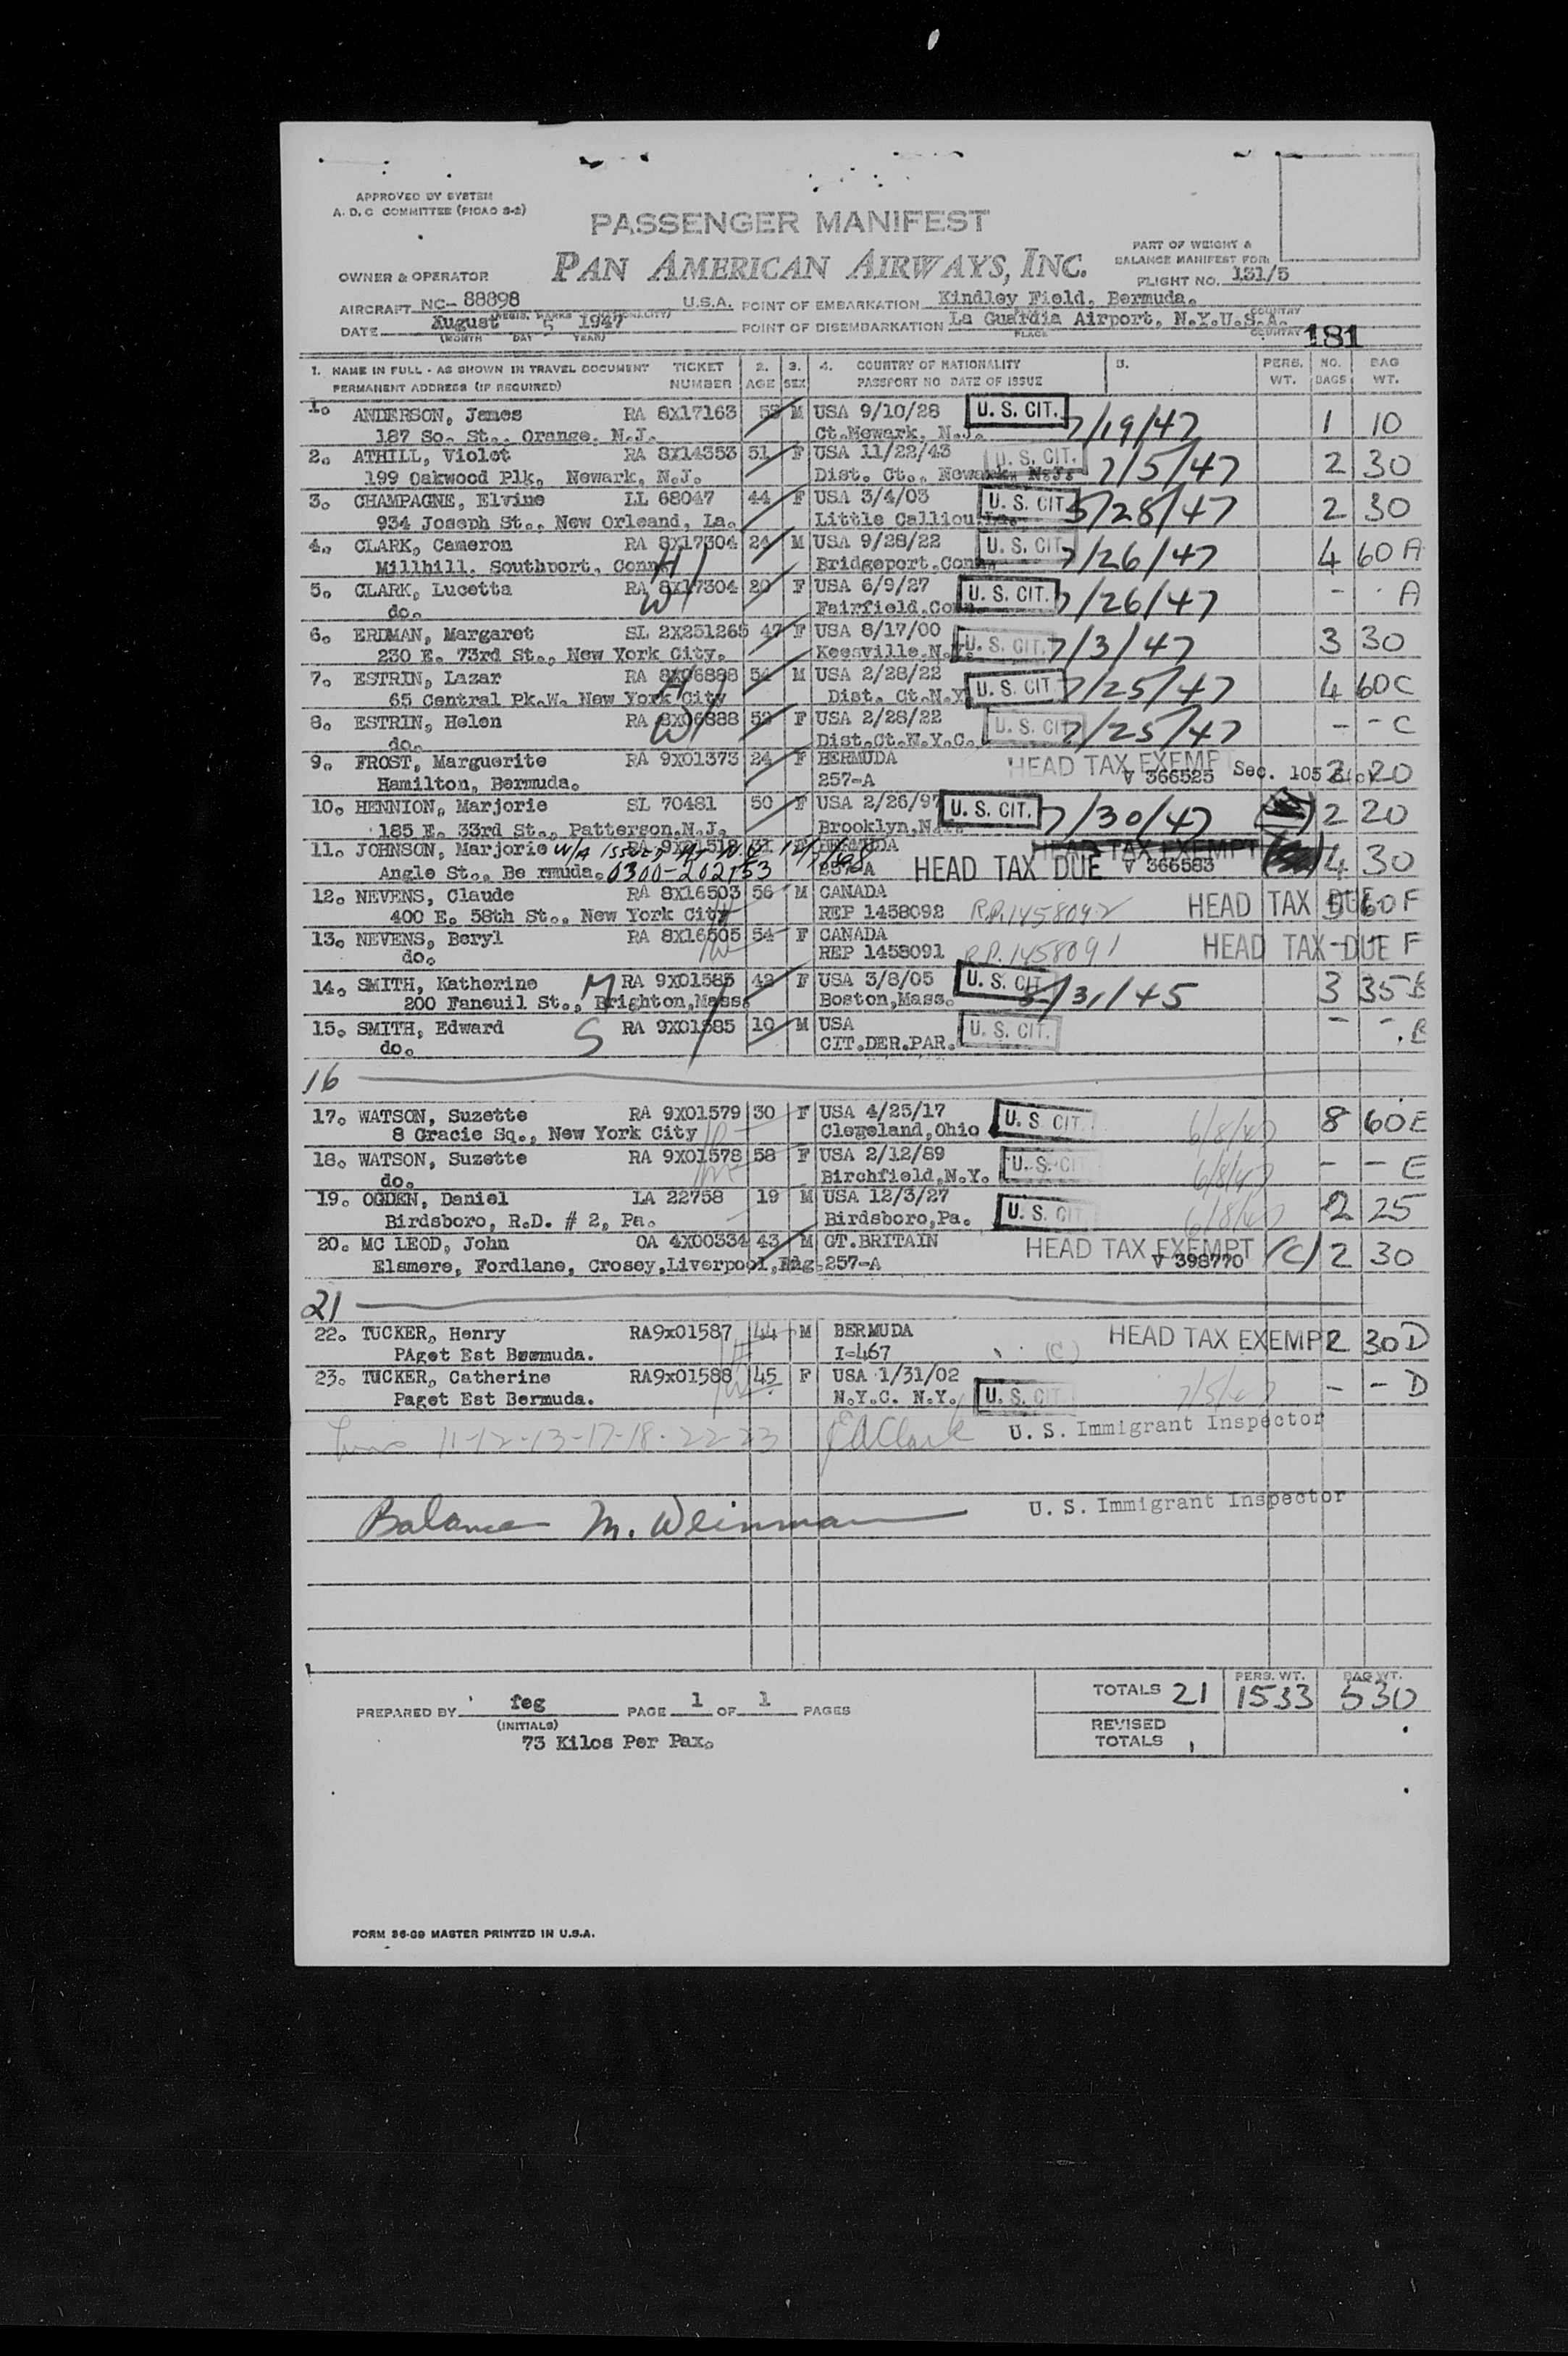 APPROVED BY SYSTEM
A. D. C COMMITTEE (PICAO S-2)
PASSENGER MANIFEST
PART OF WEIGHT &
BALANCE MANIFEST FOR:
OWNER & OPERATOR PAN AMERICAN AIRWAYS, INC. FLIGHT NO. 131/5
AIRCRAFT NC- 88898 U.S.A. POINT OF EMBARKATION Kindley Field, Bermuda.
DATE August 5 1947 POINT OF DISEMBARKATION La Guardia Airport, N.Y.U.S.A.
(MONTH DAY YEAR) PLACE COUNTRY 181
1. NAME IN FULL - AS SHOWN IN TRAVEL DOCUMENT TICKET 2. 3. 4. COUNTRY OF NATIONALITY 5. PERS. NO. BAG
PERMANENT ADDRESS (IF REQUIRED) NUMBER AGE SEX PASSPORT NO DATE OF ISSUE WT. BAGS WT.
1. ANDERSON, James RA 8X17163 53 M USA 9/10/28 U. S. CIT. 7/19/47 1 10
187 So. St., Orange, N.J. Ct.Newark, N.J.
2. ATHILL, Violet RA 8X14353 51 F USA 11/22/43 U. S. CIT. 7/5/47 2 30
199 Oakwood Plk, Newark, N.J. Dist. Ct., Newark, N.J.
3. CHAMPAGNE, Elvine LL 68047 44 F USA 3/4/03 U. S. CIT. 5/28/47 2 30
934 Joseph St., New Orleand, La. Little Calliou La.
4. CLARK, Cameron RA 8X17304 24 M USA 9/28/22 U. S. CIT. 7/26/47 4 60 A
Millhill, Southport, Conn. H Bridgeport,Conn.
5. CLARK, Lucetta RA 8X17304 20 F USA 6/9/27 U. S. CIT. 7/26/47 - - A
do. W Fairfield,Conn.
6. ERDMAN, Margaret SL 2X251265 47 F USA 8/17/00 U. S. CIT. 7/3/47 3 30
230 E. 73rd St., New York City. Keesville,N.Y.
7. ESTRIN, Lazar RA 8X06888 54 M USA 2/28/22 U. S. CIT. 7/25/47 4 60 C
65 Central Pk.W. New York City H Dist. Ct.N.Y
8. ESTRIN, Helen RA 8X06888 52 F USA 2/28/22 U. S. CIT. 7/25/47 - - C
do. W Dist.Ct.W.Y.C.
9. FROST, Marguerite RA 9X01373 24 F BERMUDA HEAD TAX EXEMPT 2 20
Hamilton, Bermuda. 257-A V 366525 Sec. 105
10. HENNION, Marjorie SL 70481 50 F USA 2/26/97 U. S. CIT. 7/30/47 2 20
185 E. 33rd St., Patterson,N.J. Brooklyn,N.Y.
11. JOHNSON, Marjorie W/A ISSUED AT N.Y. RA 9X01518 31 F BERMUDA HEAD TAX EXEMPT 4 30
Angle St., Be rmuda. 0300-202153 257-A HEAD TAX DUE V 366583
12. NEVENS, Claude RA 8X16503 56 M CANADA HEAD TAX DUE 60 F
400 E. 58th St., New York City REP 1458092 R.P.1458092
13. NEVENS, Beryl RA 8X16505 54 F CANADA HEAD TAX DUE F
do. REP 1458091 R.P.1458091
14. SMITH, Katherine M RA 9X01585 42 F USA 3/8/05 U. S. CIT. 5/31/45 3 35 B
200 Faneuil St., Brighton,Mass. Boston,Mass.
15. SMITH, Edward S RA 9X01585 10 M USA U. S. CIT. - - B
do. CIT.DER.PAR.
16
17. WATSON, Suzette RA 9X01579 30 F USA 4/25/17 U. S. CIT. 6/8/47 8 60 E
8 Gracie Sq., New York City Clegeland,Ohio
18. WATSON, Suzette RA 9X01578 58 F USA 2/12/89 U. S. CIT. 6/8/47 - - E
do. Birchfield,N.Y.
19. OGDEN, Daniel LA 22758 19 M USA 12/3/27 U. S. CIT. 6/8/47 2 25
Birdsboro, R.D. # 2, Pa. Birdsboro,Pa.
20. MC LEOD, John OA 4X00334 43 M GT.BRITAIN HEAD TAX EXEMPT (C) 2 30
Elsmere, Fordlane, Crosey,Liverpool,Eng. 257-A V 398770
21
22. TUCKER, Henry RA9x01587 44 M BERMUDA HEAD TAX EXEMPT 2 30 D
PAget Est Bermuda. H I-467 (C)
23. TUCKER, Catherine RA9x01588 45 F USA 1/31/02 U. S. CIT. 7/5/47 - - D
Paget Est Bermuda. W N.Y.C. N.Y.
11-12-13-17-18-22-23 EAClark U. S. Immigrant Inspector
Balance M. Weinman U. S. Immigrant Inspector
PERS. WT. BAG WT.
TOTALS 21 1533 530
PREPARED BY feg PAGE 1 OF 1 PAGES
(INITIALS) REVISED
73 Kilos Per Pax. TOTALS
FORM 36-09 MASTER PRINTED IN U.S.A.